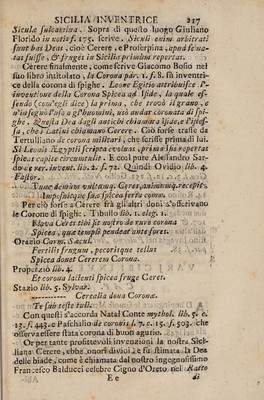 SICILIA INVENTRICE 217
Siculæ sulcatrina. Sopra di questo luogo Giuliano
Florido in notis f. 175. scrive. Siculi enim arbitrati
sunt has Deas, cioè Cerere, e Proserpina, apud se na-
tas fuisse, & fruges in Sicilia primùm repertas.
Cerere finalmente, come scrive Giacomo Bosio nel
suo libro intitolato, la Corona pàr. 1. f. 8. fù inventri-
ce della corona di spighe. Leone Egizio attribuisce l'
inventione della Corona Spicea ad Iside, la quale es-
sendo (com'egli dice) la prima, che trovò il grano, e
n'insegnò l'uso a gl'huomini, usò andar coronata di spi-
ghe. & questa Dea dagli antichi chiamata Iside, è l'istes-
sa, che i Latini chiamano Cerere. Ciò forse trasse da
Tertulliano de corona militari, che scrisse prima di lui.
Si Leonis Ægyptii scripta evolvas, prima Isis repertas
spicas capite circumtulit. E così pure Alessandro Sar-
do de rer. invent. lib. 2. f. 72. Quindi Ovidio lib. 4.
Fastor.
Imposuitque suæ spicea serta comæ.
Per ciò forse a Cerere fra gli altri doni s'offerivano
le Corone di spighe. Tibullo lib. 1. eleg. 1.
Flava Ceres tibi sit nostro de rure corona
Spicea, quæ templi pendeat ante fores.
Orazio Carm. Sæcul.
Fertilis frugum, pecorisque tellus
Spicea donet Cererem Corona.
Properzio lib. 4.
Et corona lactenti spicea fruge Ceres.
Stazio lib. 5. Sylvar.
----------- Cerealia dona Coronæ.
Te sub teste tuli.
Con questi s'accorda Natal Conte mythol. lib. 5. c.
15. f. 443. e Paschalio de coronis l. 7. c. 15. f. 503. che
osserva essere stata corona di buon agurio.
Or per tante profittevoli invenzioni la nostra Sici-
liana Cerere, ebbe onori divini, e fù stimata la Dea
delle biade, come è chiamata dal nostro ingegnosissimo
Francesco Balducci celebre Cigno d'Oreto nel Ratto
E e di